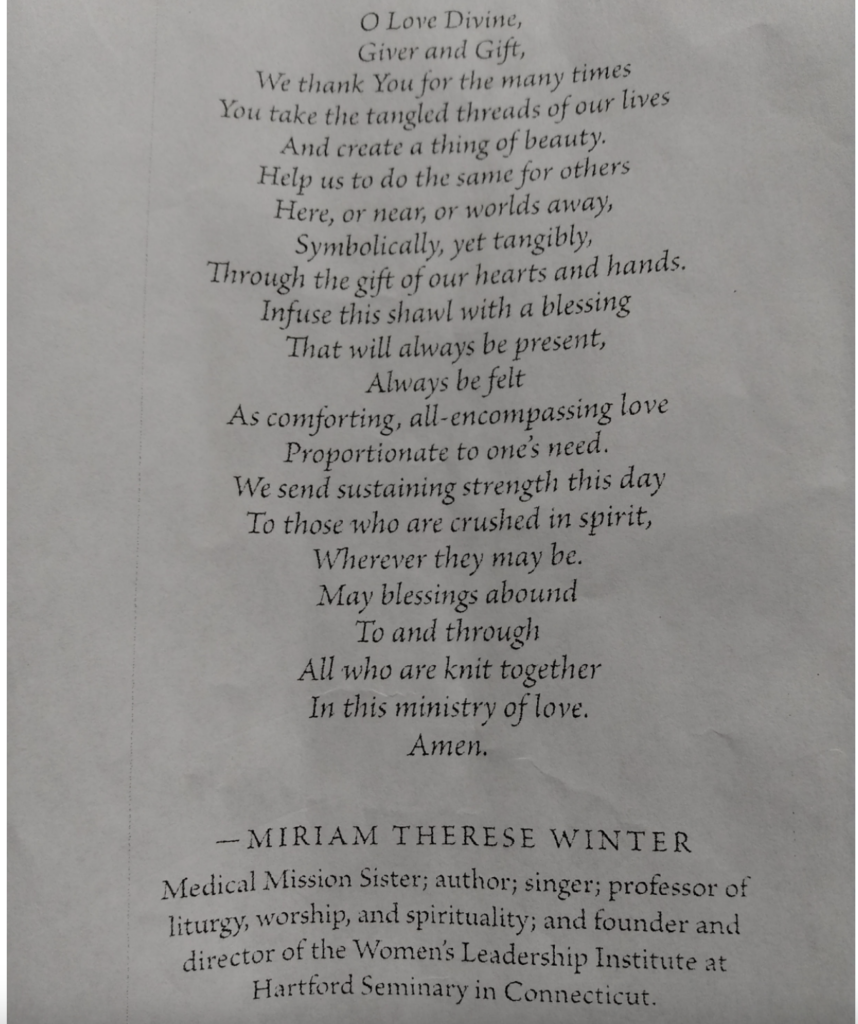 O Love Divine,
Giver and Gift,
We thank You for the many times
You take the tangled threads of our lives
And create a thing of beauty.
Help us to do the same for others
Here, or near, or worlds away,
Symbolically, yet tangibly,
Through the gift of our hearts and hands.
Infuse this shawl with a blessing
That will always be present,
Always be felt
As comforting, all-encompassing love
Proportionate to one's need.
We send sustaining strength this day
To those who are crushed in spirit,
Wherever they may be.
May blessings abound
To and through
All who are knit together
In this ministry of love.
Amen.
—MIRIAM THERESE WINTER
Medical Mission Sister; author; singer; professor of
liturgy, worship, and spirituality; and founder and
director of the Women's Leadership Institute at
Hartford Seminary in Connecticut.